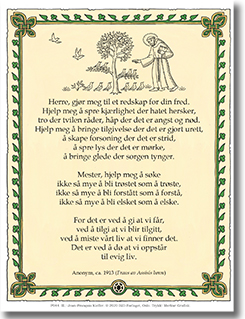 Herre, gjør meg til et redskap for din fred.
Hjelp meg å spre kjærlighet der hatet hersker,
tro der tvilen råder, håp der det er angst og nød.
Hjelp meg å bringe tilgivelse der det er gjort urett,
å skape forsoning der det er strid,
å spre lys der det er mørke,
å bringe glede der sorgen tynger.
Mester, hjelp meg å søke
ikke så mye å bli trøstet som å trøste,
ikke så mye å bli forstått som å forstå,
ikke så mye å bli elsket som å elske.
For det er ved å gi at vi får,
ved å tilgi at vi blir tilgitt,
ved å miste vårt liv at vi finner det.
Det er ved å dø at vi oppstår
til evig liv.
Anonym, ca. 1913 (Frans av Assisis bønn)